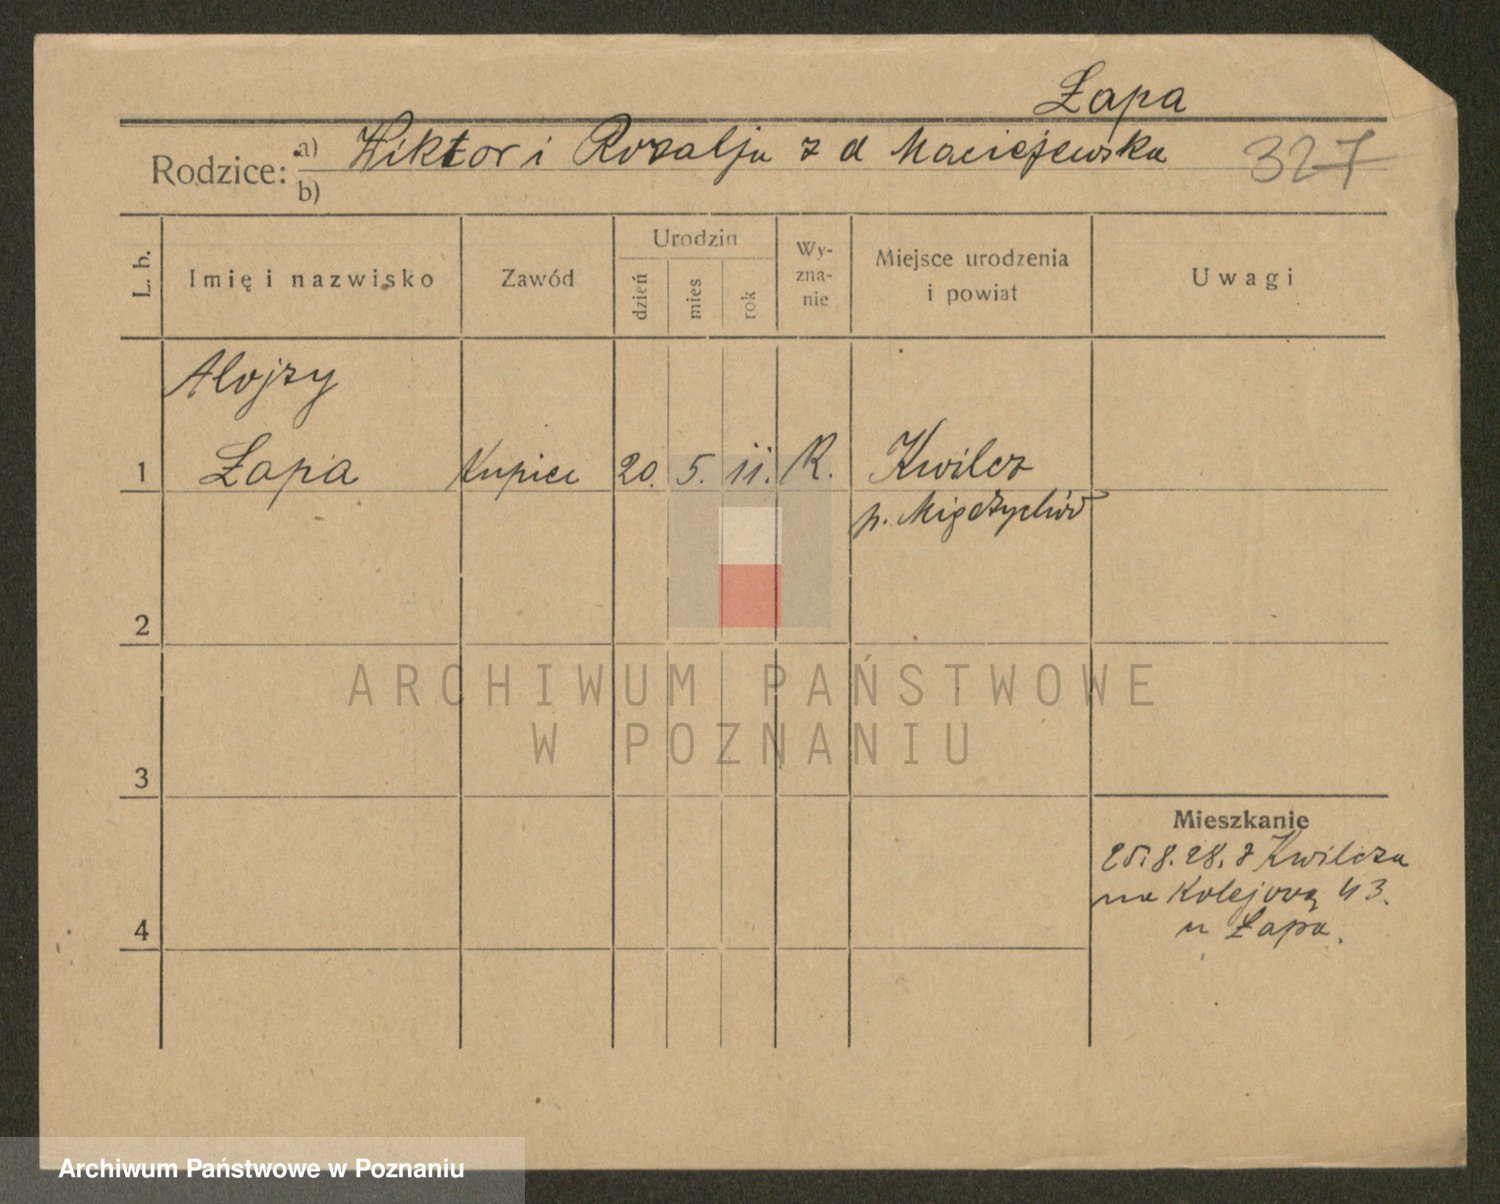 Łapa
Rodzice: a) Wiktor i Rozalja z d Maciejewska 327
b)
L. b. Imię i nazwisko Zawód Urodzin dzień mies rok Wy-zna-nie Miejsce urodzenia i powiat Uwagi
Alojzy
1 Łapa Kupiec 20. 5. 11. R. Kwilcz
p. Międzychód
2
3
Mieszkanie
25.8.28. z Kwilcza
na Kolejową 43.
4 u Łapa.
ARCHIWUM PAŃSTWOWE
W POZNANIU
Archiwum Państwowe w Poznaniu